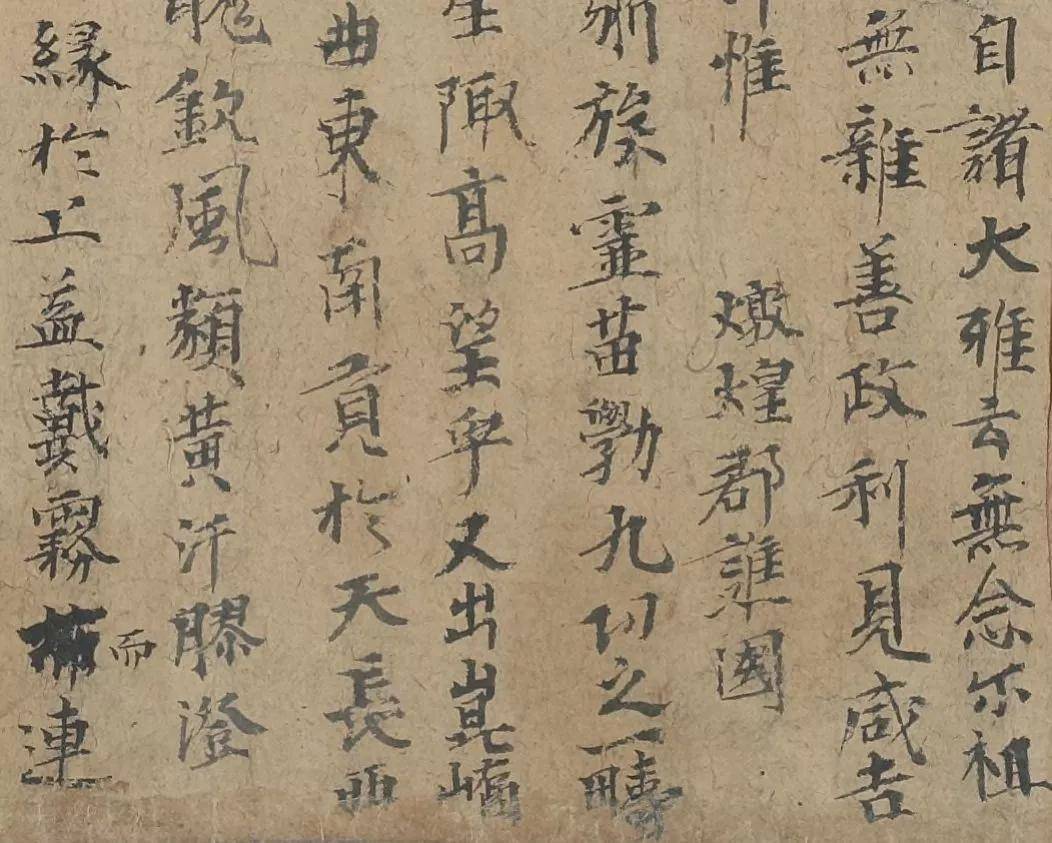 自諸大雅云無念尓祖
無雜善政利見咸吉
惟 燉煌郡誰國
族靈苗勣九功之一疇
陬高望卑又出崑崙
曲東南負於天長西
欽風類黃汗膠澄
緣於上蓋戴霧而連